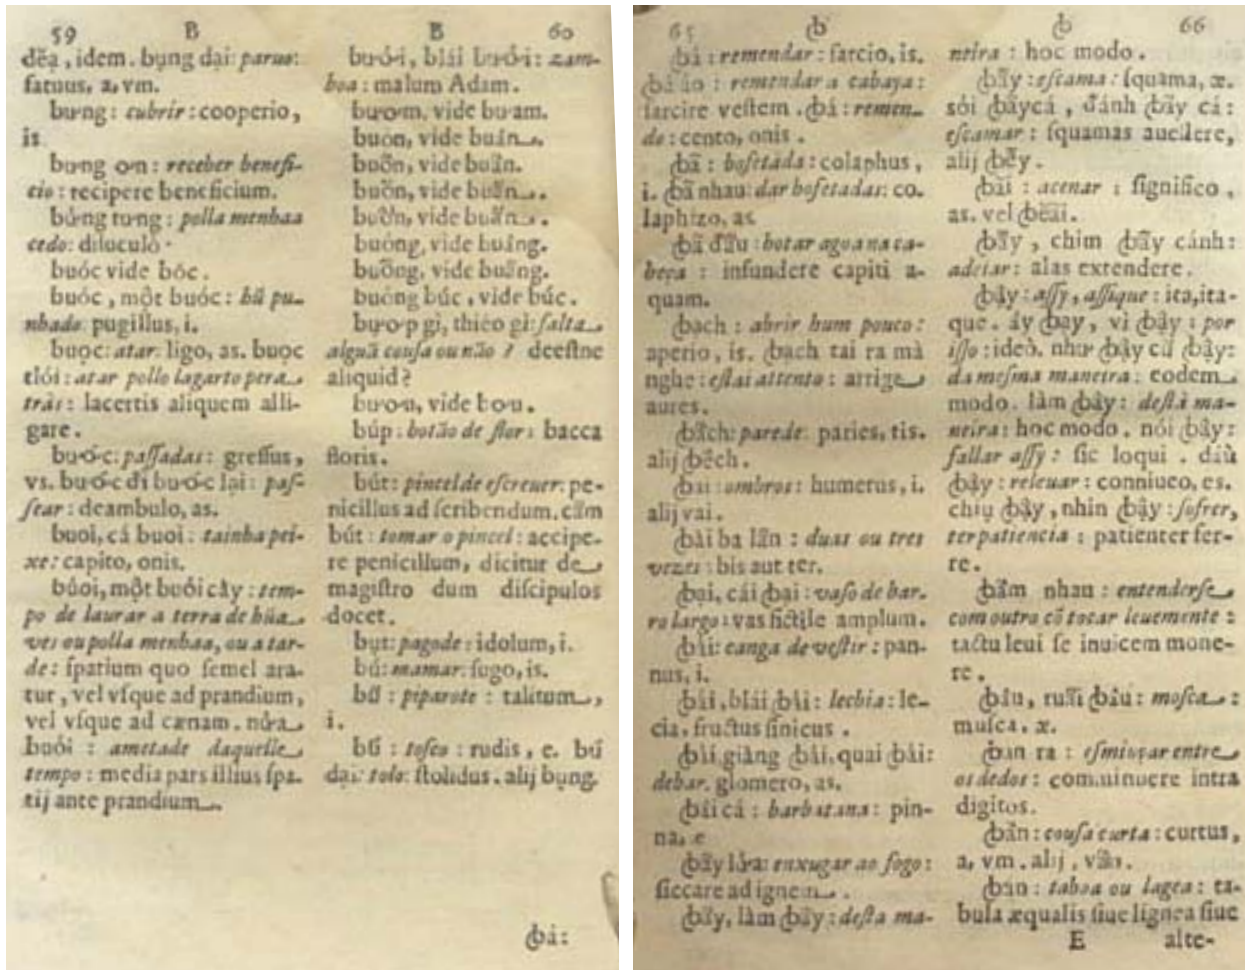 59 B
dĕạ, idem. bụng dại: paruo:
fatuus, a, vm.
bưng: cubrir: cooperio,
is.
bưng ơn: receber benefi-
cio: recipere beneficium.
bửng tưng: polla menhaa
cedo: diluculò.
buóc vide bóc.
buóc, một buóc: hũ pu-
nhado: pugillus, i.
buọc: atar: ligo, as. buọc
tlói: atar pollo lagarto pera
tràs: lacertis aliquem alli-
gare.
bước: passadas: gressus,
vs. bước đi bước lại: pas-
sear: deambulo, as.
buoi, cá buoi: tainha pei-
xe: capito, onis.
buổi, một buổi cày: tem-
po de laurar a terra de hũa
ves ou polla menhaa, ou a tar-
de: spatium quo semel ara-
tur, vel vsque ad prandium,
vel vsque ad cænam. nửa
buổi: ametade daquelle
tempo: media pars illius spa-
tij ante prandium.
B 60
bưởi, blái bưởi: zam-
boa: malum Adam.
bươm, vide bưam.
buon, vide buân.
buõn, vide buân.
buõn, vide buân.
vide
buóng, vide buâng.
buõng, vide buâng.
buồng búc, vide búc.
bươp gì, thieo gì: falta
algũa cousa ou não? deestne
aliquid?
bươu, vide bou.
búp: botão de flor: bacca
floris.
bút: pincel de escreuer: pe-
nicillus ad scribendum. cầm
bút: tomar o pincel: accipe-
re penicillum, dicitur de
magistro dum discipulos
docet.
bụt: pagode: idolum, i.
bú: mamar: sugo, is.
bũ: piparote: talitrum,
i.
bũ: tosco: rudis, e. bũ
dại: tolo: stolidus. alij bụng.
ꞗá:
65 ꞗ
ꞗá: remendar: sarcio, is.
ꞗá áo: remendar a cabaya:
sarcire vestem. ꞗá: remen-
do: cento, onis.
ꞗã: bofetada: colaphus,
i. ꞗã nhau: dar bofetadas: co-
laphizo, as.
ꞗã đầu: botar agoa na ca-
beça: infundere capiti a-
quam.
ꞗach: abrir hum pouco:
aperio, is. ꞗach tai ra mà
nghe: estai attento: arrige
aures.
ꞗách: parede: paries, tis.
alij ꞗếch.
ꞗai: ombros: humerus, i.
alij vai.
ꞗài ba lần: duas ou tres
vezes: bis aut ter.
ꞗại, cái ꞗại: vaso de bar-
ro largo: vas fictile amplum.
ꞗải: canga de vestir: pan-
nus, i.
ꞗải, blái ꞗải: lechia: le-
cia, fructus sinicus.
ꞗái, giàng ꞗái, quai ꞗái:
debar. glomero, as.
ꞗái cá: barbatana: pin-
na, e
ꞗãy lửa: enxugar ao fogo:
siccare ad ignem.
ꞗãy, làm ꞗãy: desta ma-
ꞗ 66
neira: hoc modo.
ꞗãy: escama: squama, æ.
sói ꞗãy cá, đánh ꞗãy cá:
escamar: squamas auellere,
alij ꞗẽy.
ꞗãi: acenar: significo,
as. vel ꞗẽai.
ꞗãy, chim ꞗãy cánh:
adejar: alas extendere.
ꞗậy: assy, assique: ita, ita-
que. áy ꞗạy, vì ꞗậy: por
isso: ideò. như ꞗậy cũ ꞗậy:
da mesma maneira: eodem
modo. làm ꞗậy: desta ma-
neira: hoc modo. nói ꞗậy:
fallar assy: sic loqui.
ꞗậy: releuar: conniueo, es.
chịu ꞗậy, nhin ꞗậy: sofrer,
ter patiencia: patienter fer-
re.
ꞗấm nhau: entenderse
com outro cõ tocar leuemente:
tactu leui se inuicem mone-
re.
ꞗâu, ruồi ꞗâu: mosca:
musca, æ.
ꞗan ra: esmiuçar entre
os dedos: comminuere intra
digitos.
ꞗán: cousa curta: curtus,
a, vm. alij, vắn.
ꞗán: taboa ou lagea: ta-
bula æqualis siue lignea siue
E alte-